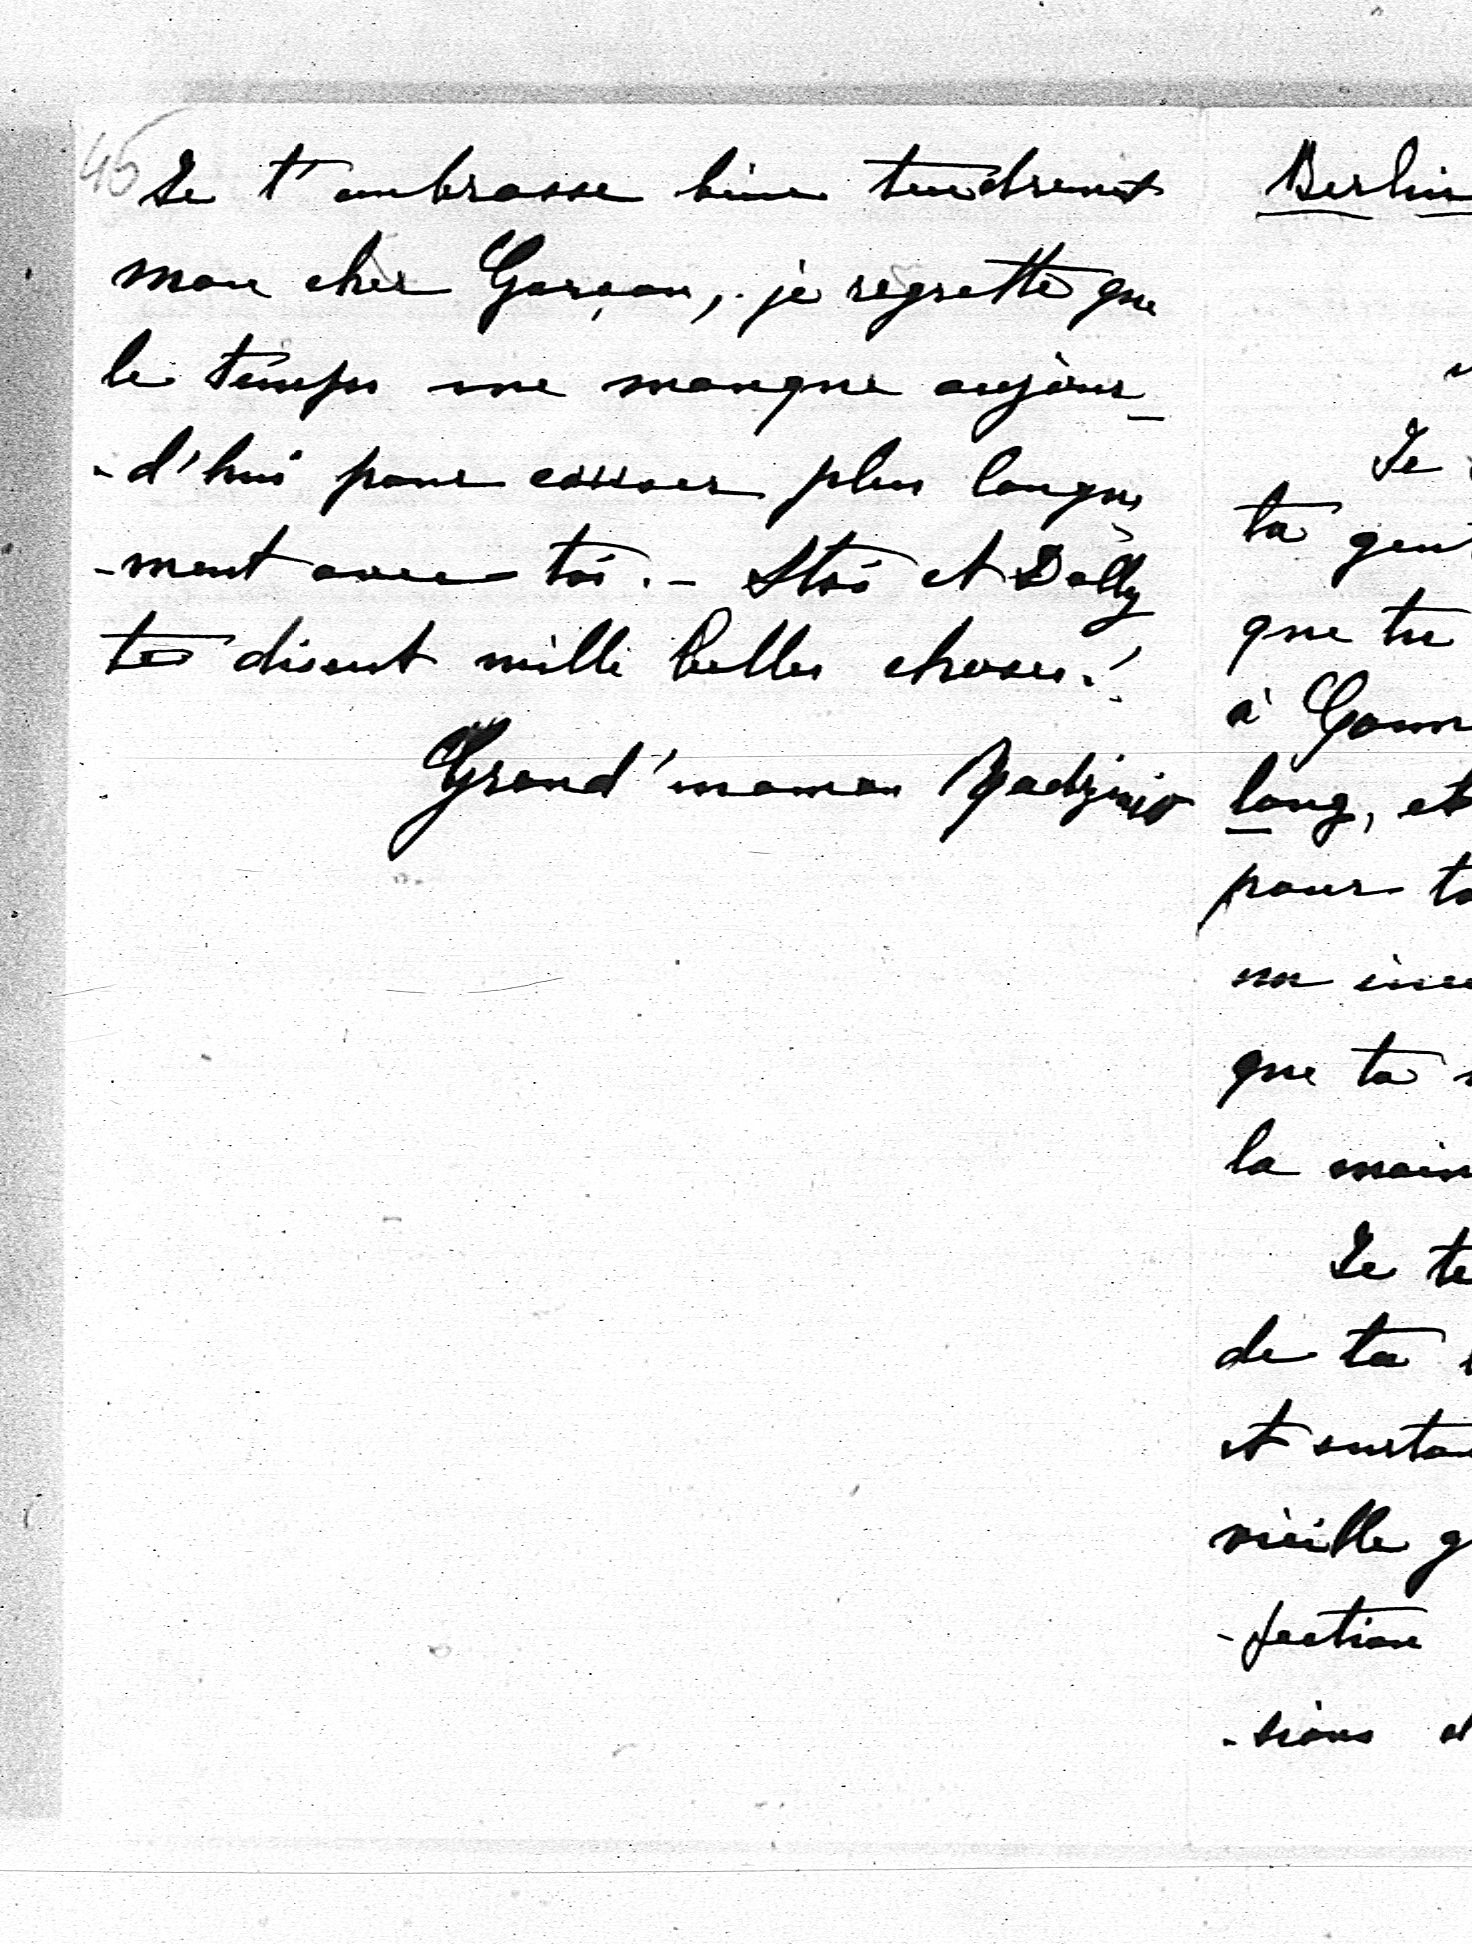 45
Je t'embrasse bien tendrement
mon cher Garçon, je regrette que
le temps me manque aujour-
-d'hui pour causer plus longue
-ment avec toi. - Stas et Dolly
te disent mille belles choses!
Grand'maman
Berlin
Je
ta gen
que tu
à
long, et
pour ta
un
que ta
la main
Je te
de ta
et surtou
vieille g
-fection
-sions d